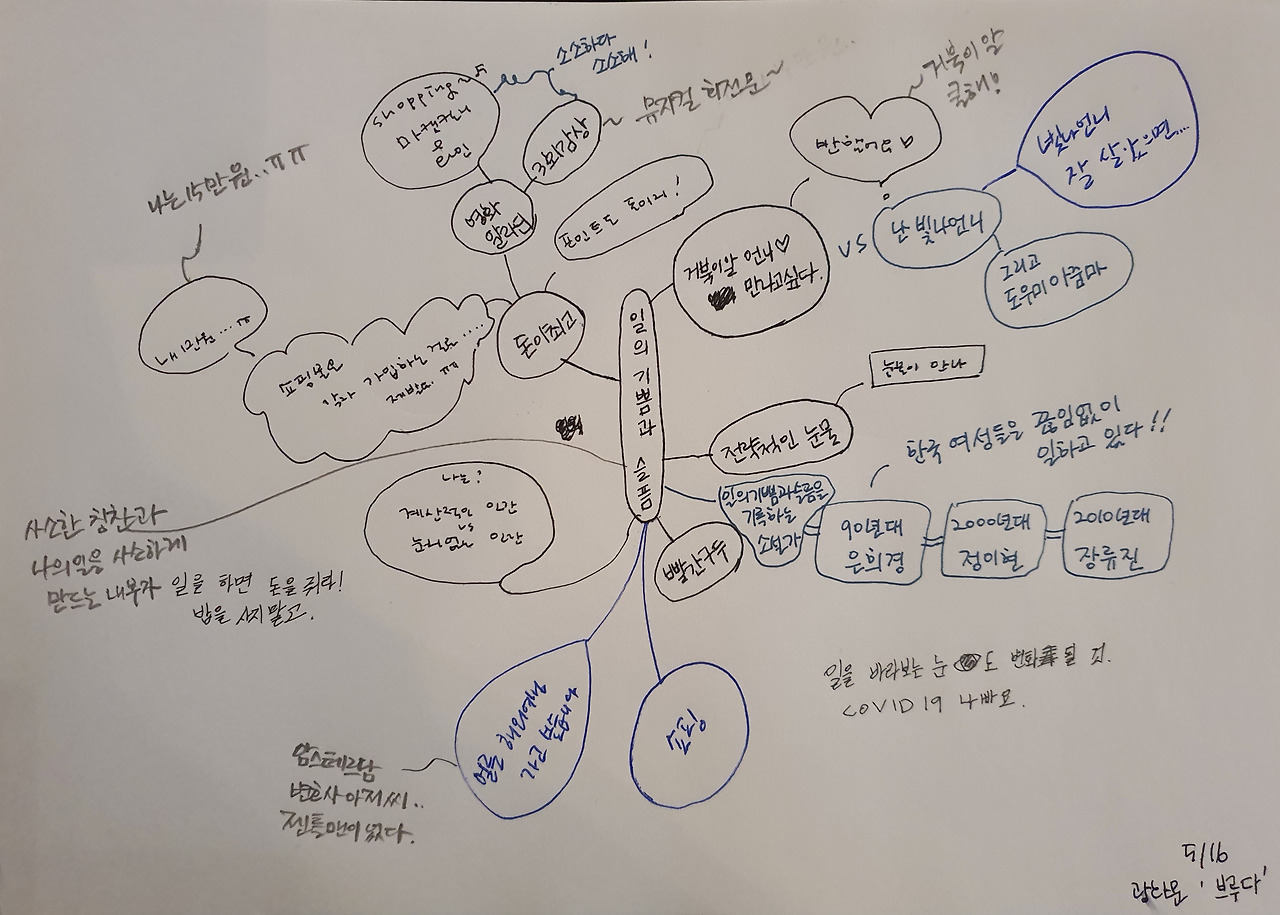 소소하다
소소해!
shopping
마켓컬리
용
3회감상
뮤지컬 회전문~
거북이알
클래!
반할어요♡
빛나언니
잘 살았으면...
나는15만원..ㅠㅠ
영화
알라딘
포인트도 돈이지!
거북이알 언니♡
만나고싶다.
VS
난 빛나언니
그리고
도우미아줌마
내1만원....ㅠ
쇼핑몰은
각자 가입하는걸로.....
제발요. ㅠㅠ
돈이최고
일의기쁨과 슬픔
눈물이 만나
전략적인 눈물
한국 여성들은 끊임없이
일하고 있다!!
나는?
계산적인 인간
vs
눈치없는 인간
일의기쁨과슬픔을
기록하는
소설가
90년대
은희경
2000년대
정이현
2010년대
장류진
빨간구두
사소한 칭찬과
나의일을 사소하게
만드는 내부자
일을 하면 돈을 줘라!
밥을 사지말고.
일을 바라보는 눈도 변화될 것.
COVID19 나빠요.
얼른 해외여행
가고 싶습니다
쇼핑
암스테르담
변호사아저씨..
젠틀맨이었다.
5/16
광화문 '브루다'